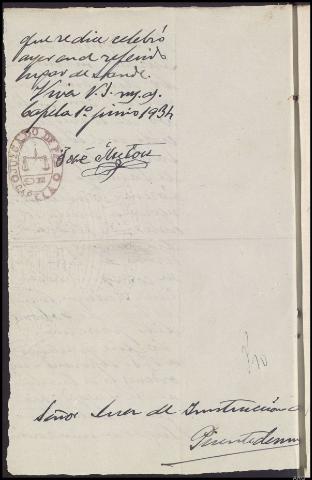 que se dice celebró
ayer en el referido
lugar de
Viva V.S. m. a.
Capela 1º junio 1934
José
JUZGADO DE
CAPELA
Señor Juez de Instrucción de
Puentedeume